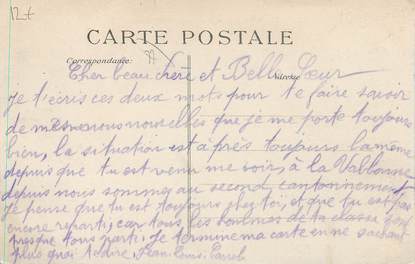 12+
CARTE POSTALE
Correspondance
Adresse
Cher beau frère et Belle Sœur
Je t'écris ces deux mots pour te faire savoir
de mes nouvelles que je me porte toujours
bien, la situation est à près toujours la même
depuis que tu est venu me voir, à la Valbonne
depuis nous sommes au second cantonnement
Je pense que tu est toujours chez toi, et que tu est pas
encore reparti, car tous les hommes de ta classe sont
presque tous parti. Je termine ma carte en ne sachant
plus quoi te dire. Jean Louis